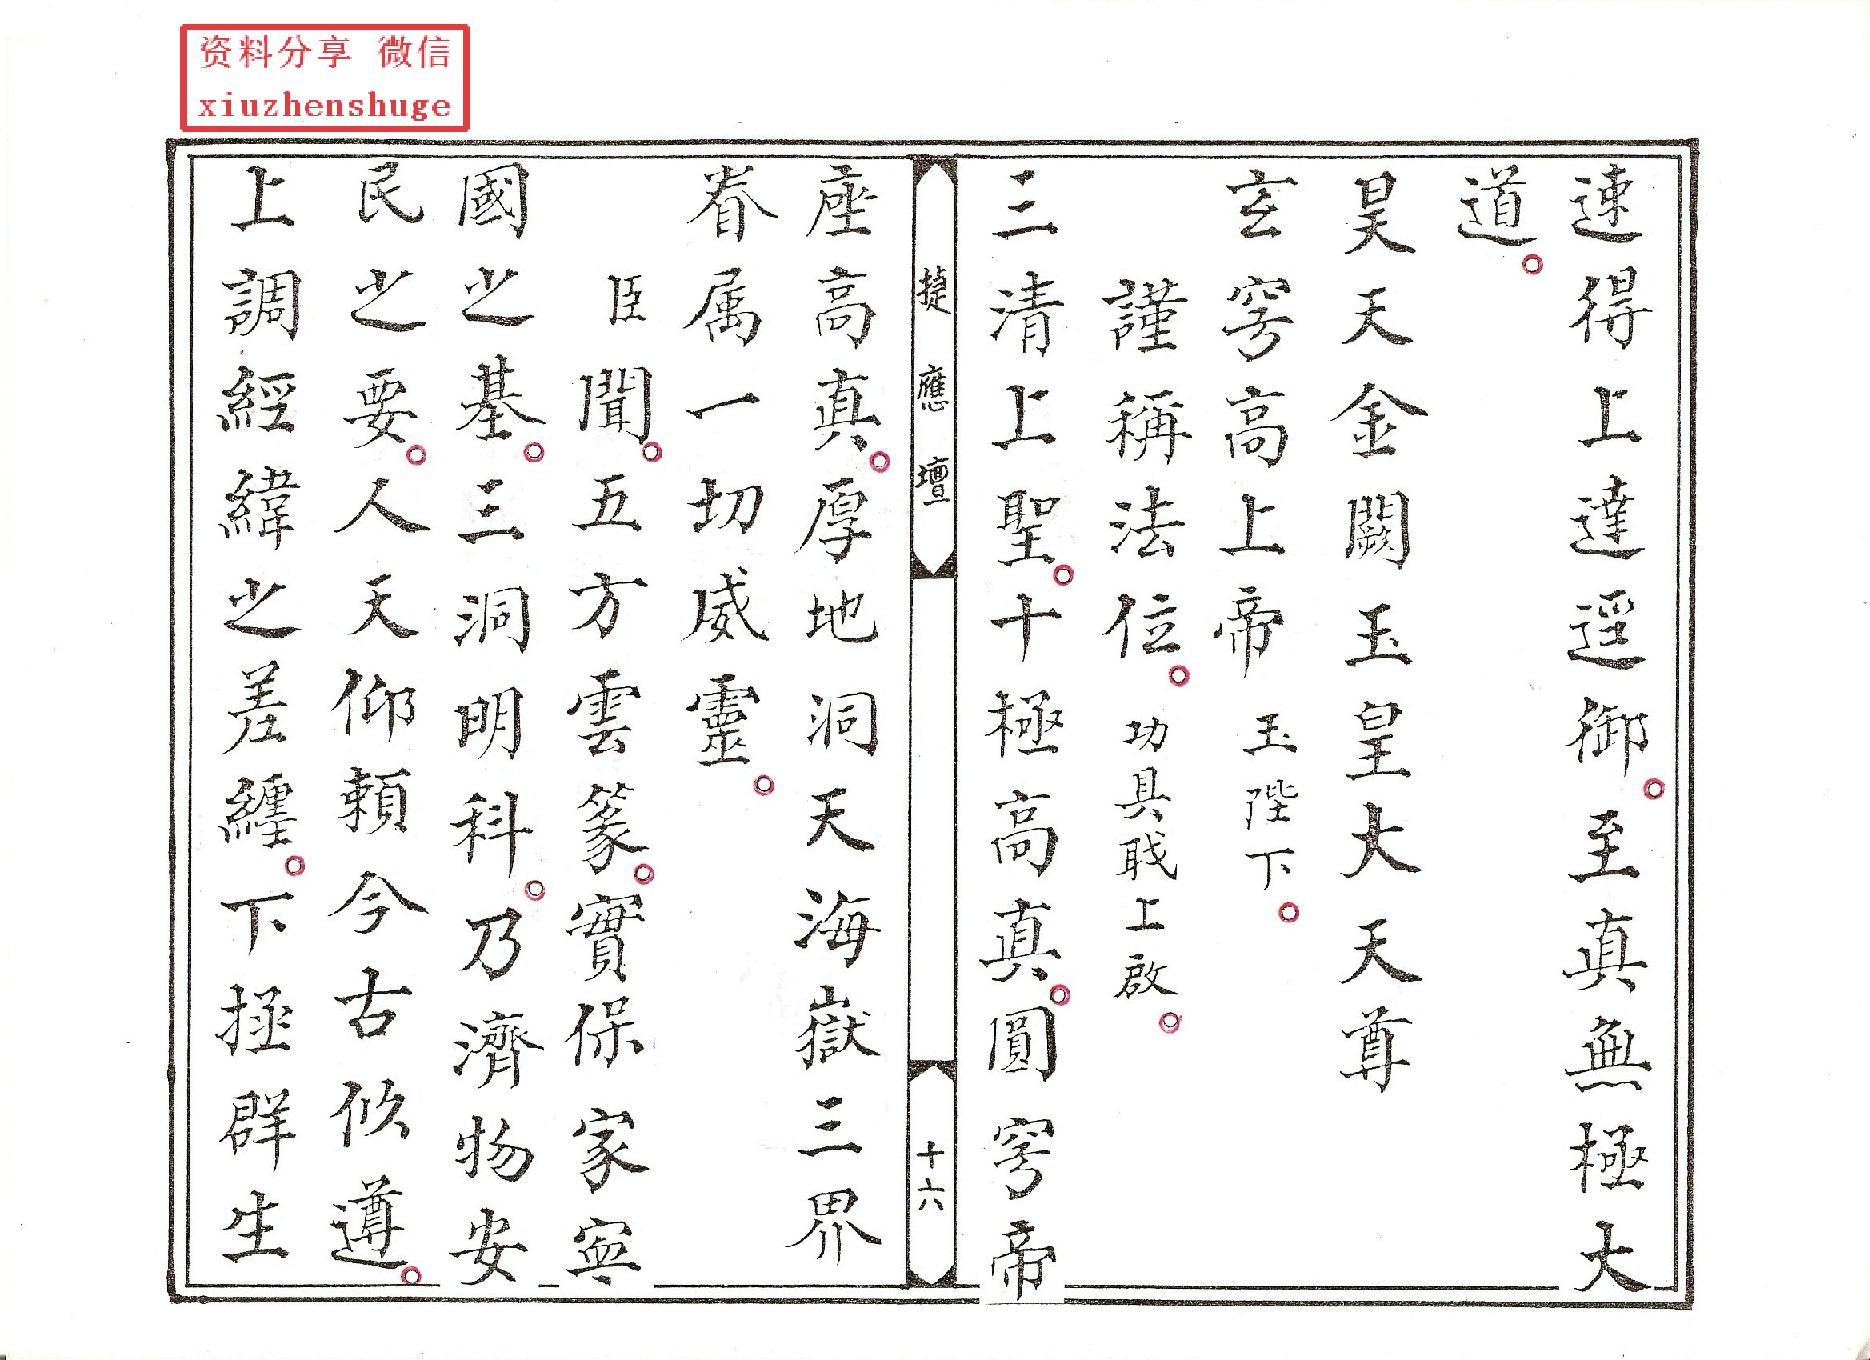 资料分享 微信
xiuzhenshuge
速得上達逕御。至真無極大
道。
昊天金闕玉皇大天尊
玄穹高上帝 玉陛下。
謹稱法位。功具職上啟。
三清上聖。十極高真。圓穹帝
捷應壇
十六
座高真。厚地洞天海嶽三界
眷属一切威靈。
臣聞。五方雲篆。實保家寧
國之基。三洞明科。乃濟物安
民之要。人天仰賴今古攸遵。
上調經緯之差纏。下拯群生